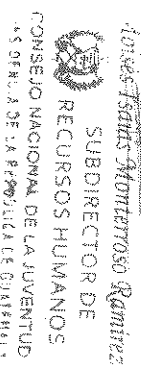 Isaias Monterroso Ramirez
SUBDIRECTOR DE
RECURSOS HUMANOS
CONSEJO NACIONAL DE LA JUVENTUD
DE LA REPUBLICA DE GUATEMALA